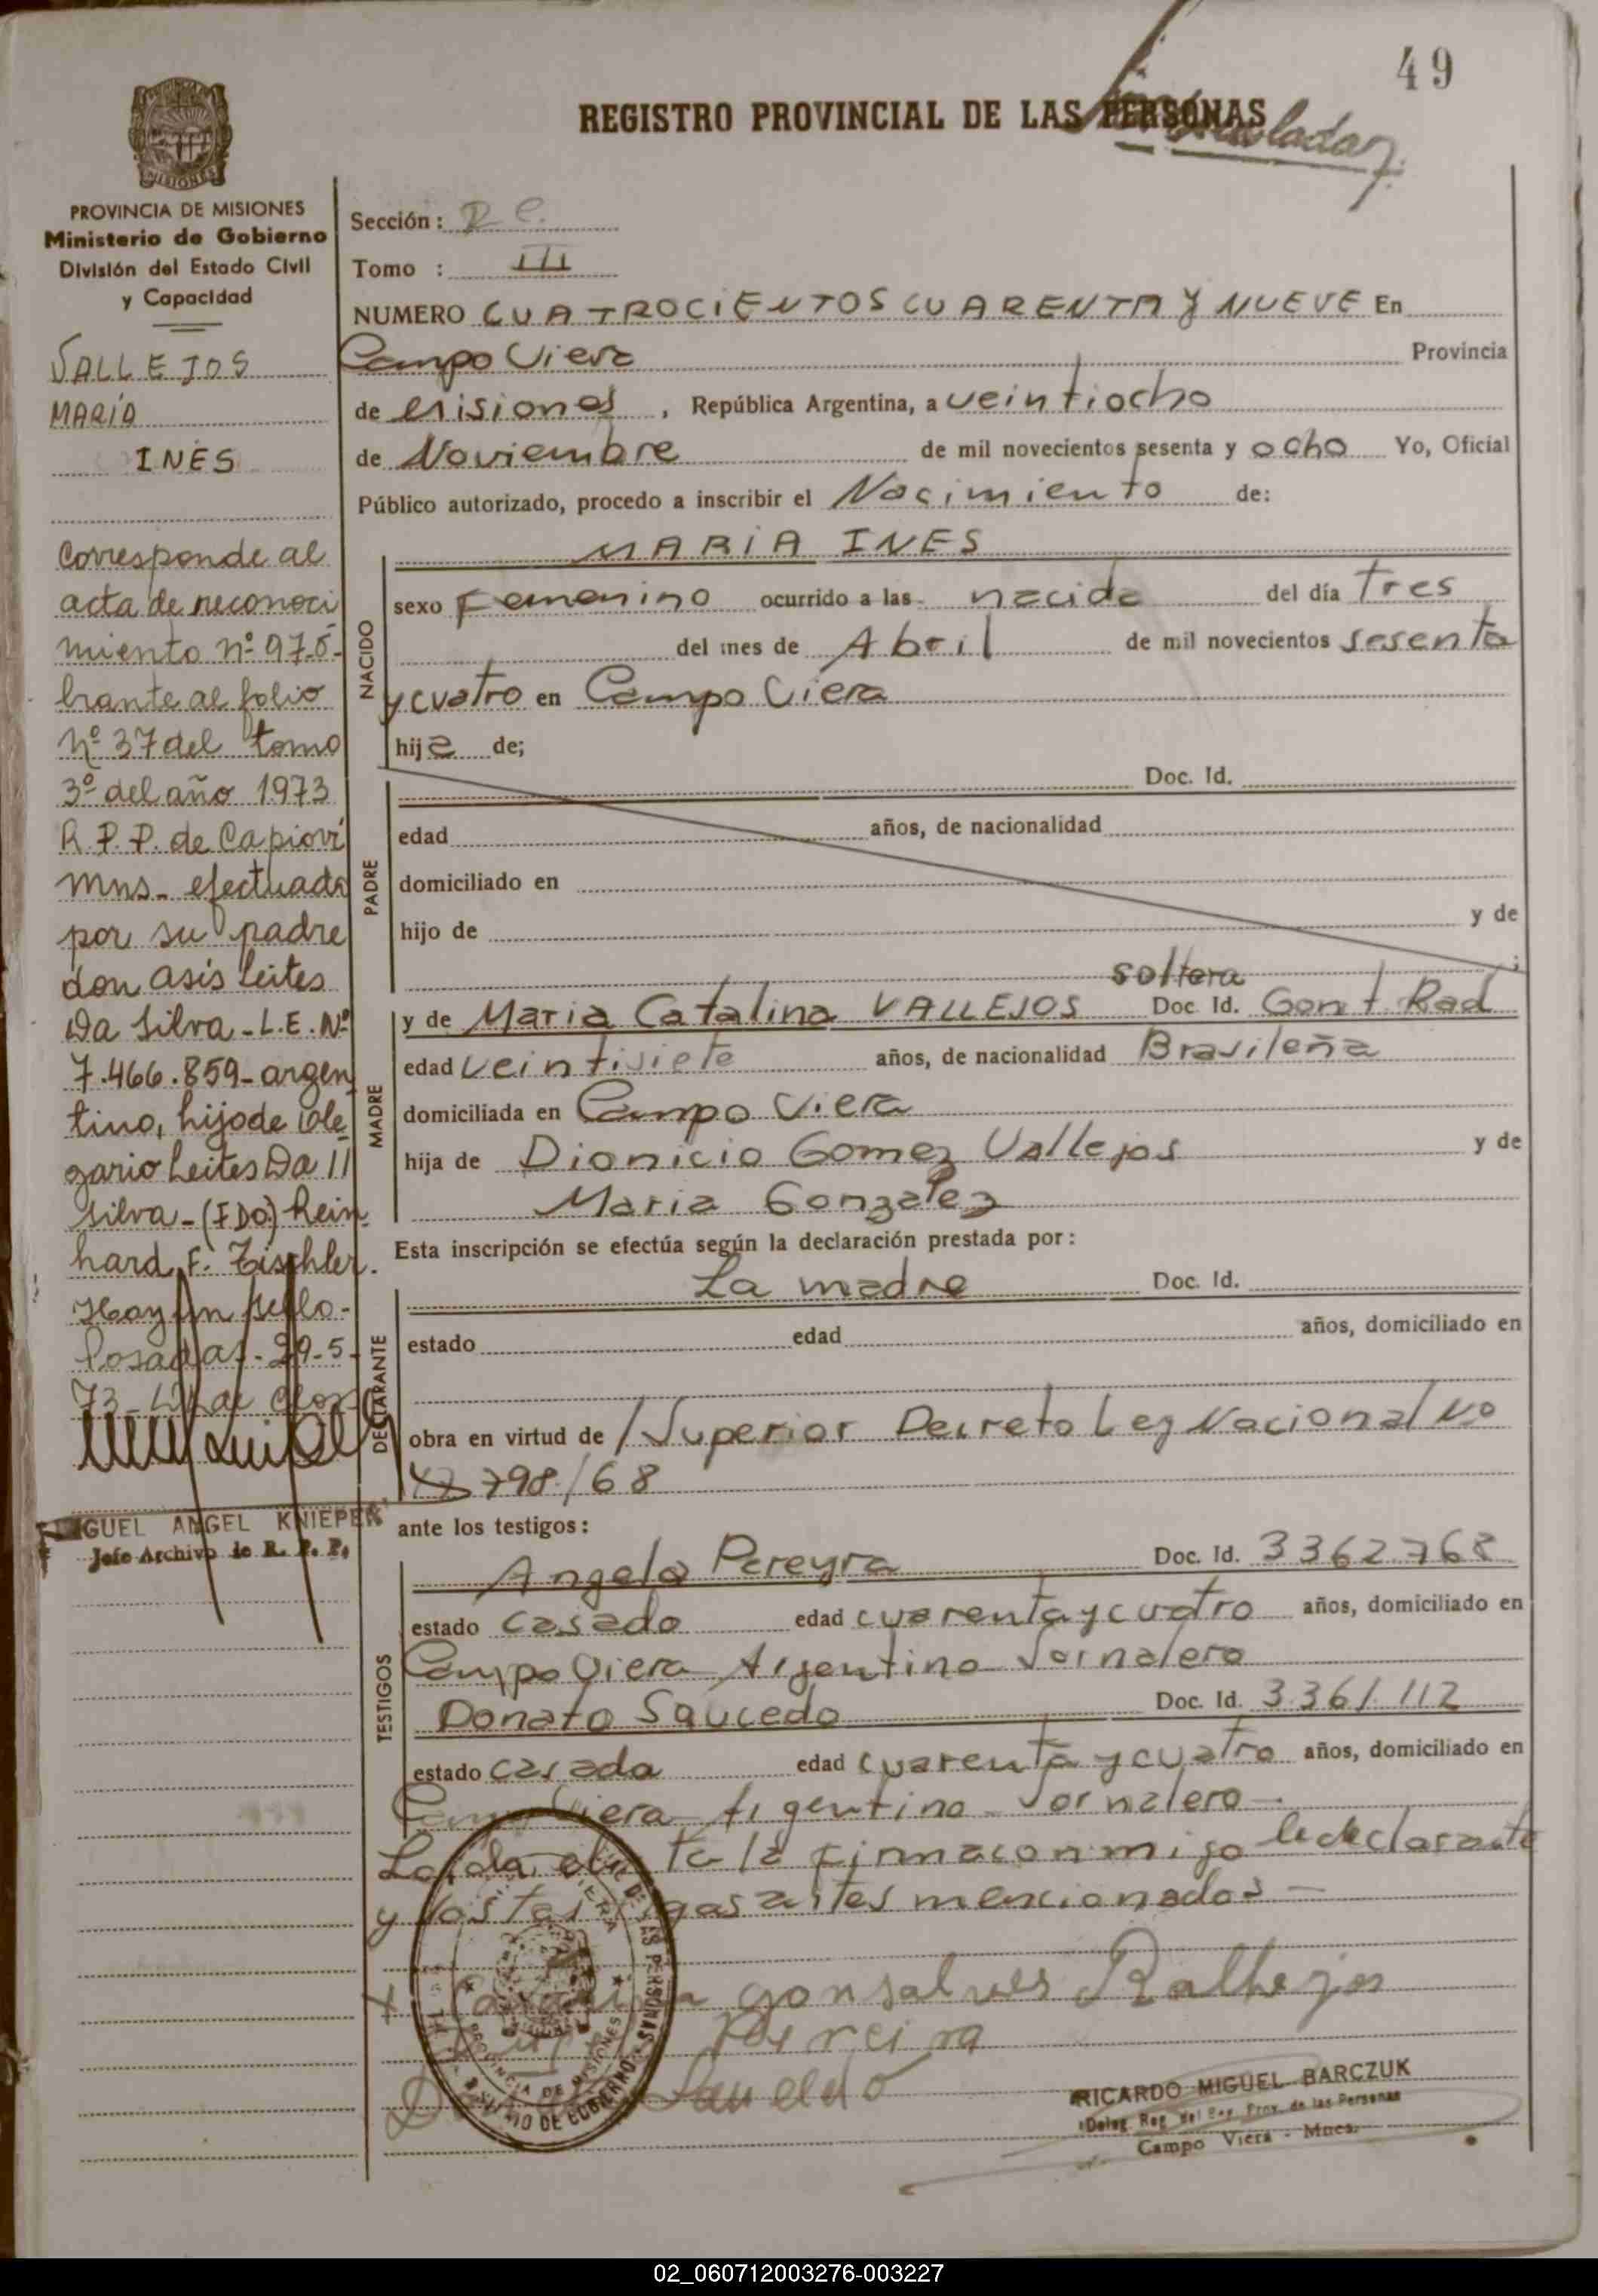 49
REGISTRO PROVINCIAL DE LAS PERSONAS
MISIONES
PROVINCIA DE MISIONES
Ministerio de Gobierno
División del Estado Civil
y Capacidad
VALLEJOS
MARIA
INES
Corresponde al
acta de reconoci
miento nº 97 o-
brante al folio
Nº 37 del tomo
3º del año 1973
R.P.P. de Capioví
Mns- efectuado
por su padre
don Asis Leites
Da Silva - L.E. Nº
7.466.859- argen
tino, hijo de Ole
gario Leites Da
Silva - (FDO) Rein
hard F. Tischler.
Hay un sello-
Posadas - 29-5-
73
MIGUEL ANGEL KNIEPER
Jefe Archivo de R. P. P.
Sección: R C.
Tomo : III
NUMERO CUATROCIENTOS CUARENTA Y NUEVE En
Campo Viera Provincia
de Misiones, República Argentina, a veintiocho
de Noviembre de mil novecientos sesenta y ocho Yo, Oficial
Público autorizado, procedo a inscribir el Nacimiento de:
NACIDO
MARIA INES
sexo Femenino ocurrido a las nacida del día tres
del mes de Abril de mil novecientos sesenta
y cuatro en Campo Viera
hija de;
PADRE
Doc. Id.
edad años, de nacionalidad
domiciliado en
hijo de y de
;
MADRE
soltera
y de Maria Catalina VALLEJOS Doc. Id. Cont. Rad
edad veintisiete años, de nacionalidad Brasileña
domiciliada en Campo Viera
hija de Dionicio Gomez Vallejos y de
Maria Gonzalez
Esta inscripción se efectúa según la declaración prestada por:
DECLARANTE
La madre Doc. Id.
estado edad años, domiciliado en
obra en virtud de / Superior Decreto Ley Nacional No
798/68
ante los testigos:
TESTIGOS
Angela Pereyra Doc. Id. 3362.768
estado casado edad cuarenta y cuatro años, domiciliado en
Campo Viera Argentino Jornalero
Donato Saucedo Doc. Id. 3.361.112
estado casado edad cuarenta y cuatro años, domiciliado en
Campo Viera Argentino Jornalero-
Leida el acta la firma conmigo la declarante
y los testigos antes mencionados-
Catalina gonsalves Ballejos
Pereira
Saucedo
PROVINCIA DE MISIONES
RICARDO MIGUEL BARCZUK
Deleg. Reg. del Reg. Prov. de las Personas
Campo Viera - Mnes.
02_060712003276-003227